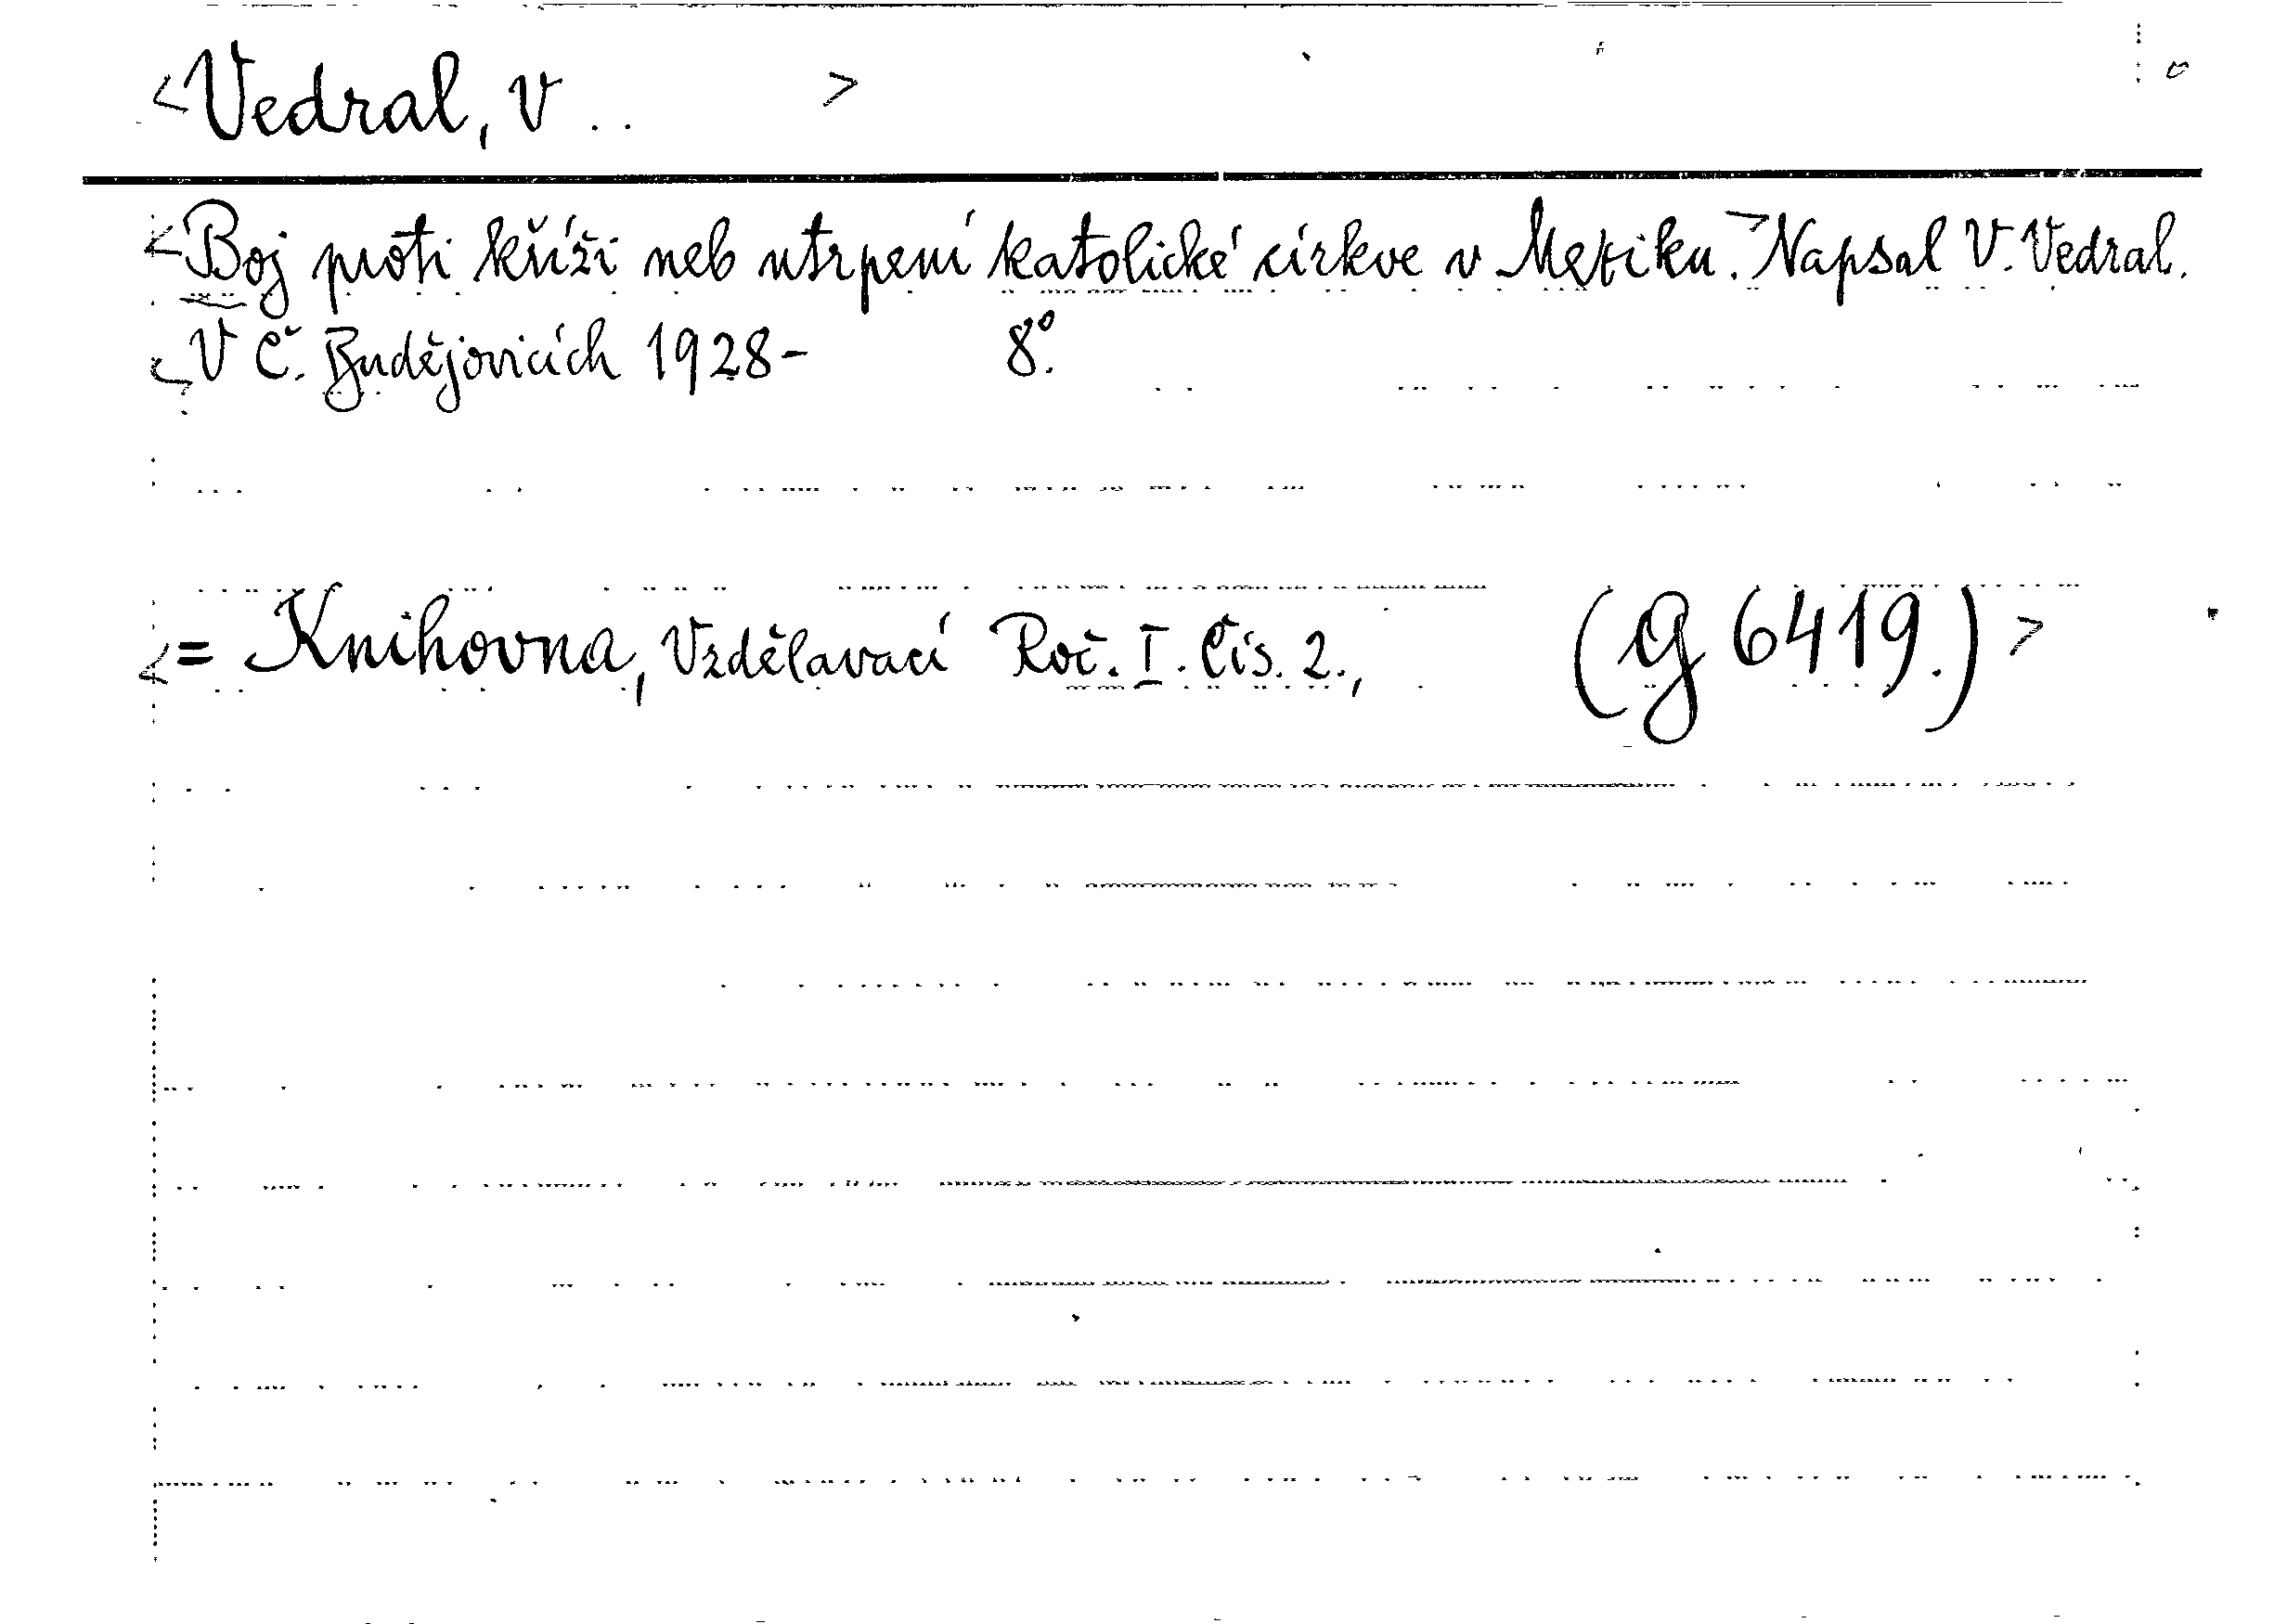 <Vedral, V . . >
<Boj proti kříži neb utrpení katolické církve v Mexiku.> Napsal V. Vedral.
V Č. Budějovicích 1928- 8°.
<= Knihovna, Vzdělavací Roč. I. Čís. 2., (G 6419.) >